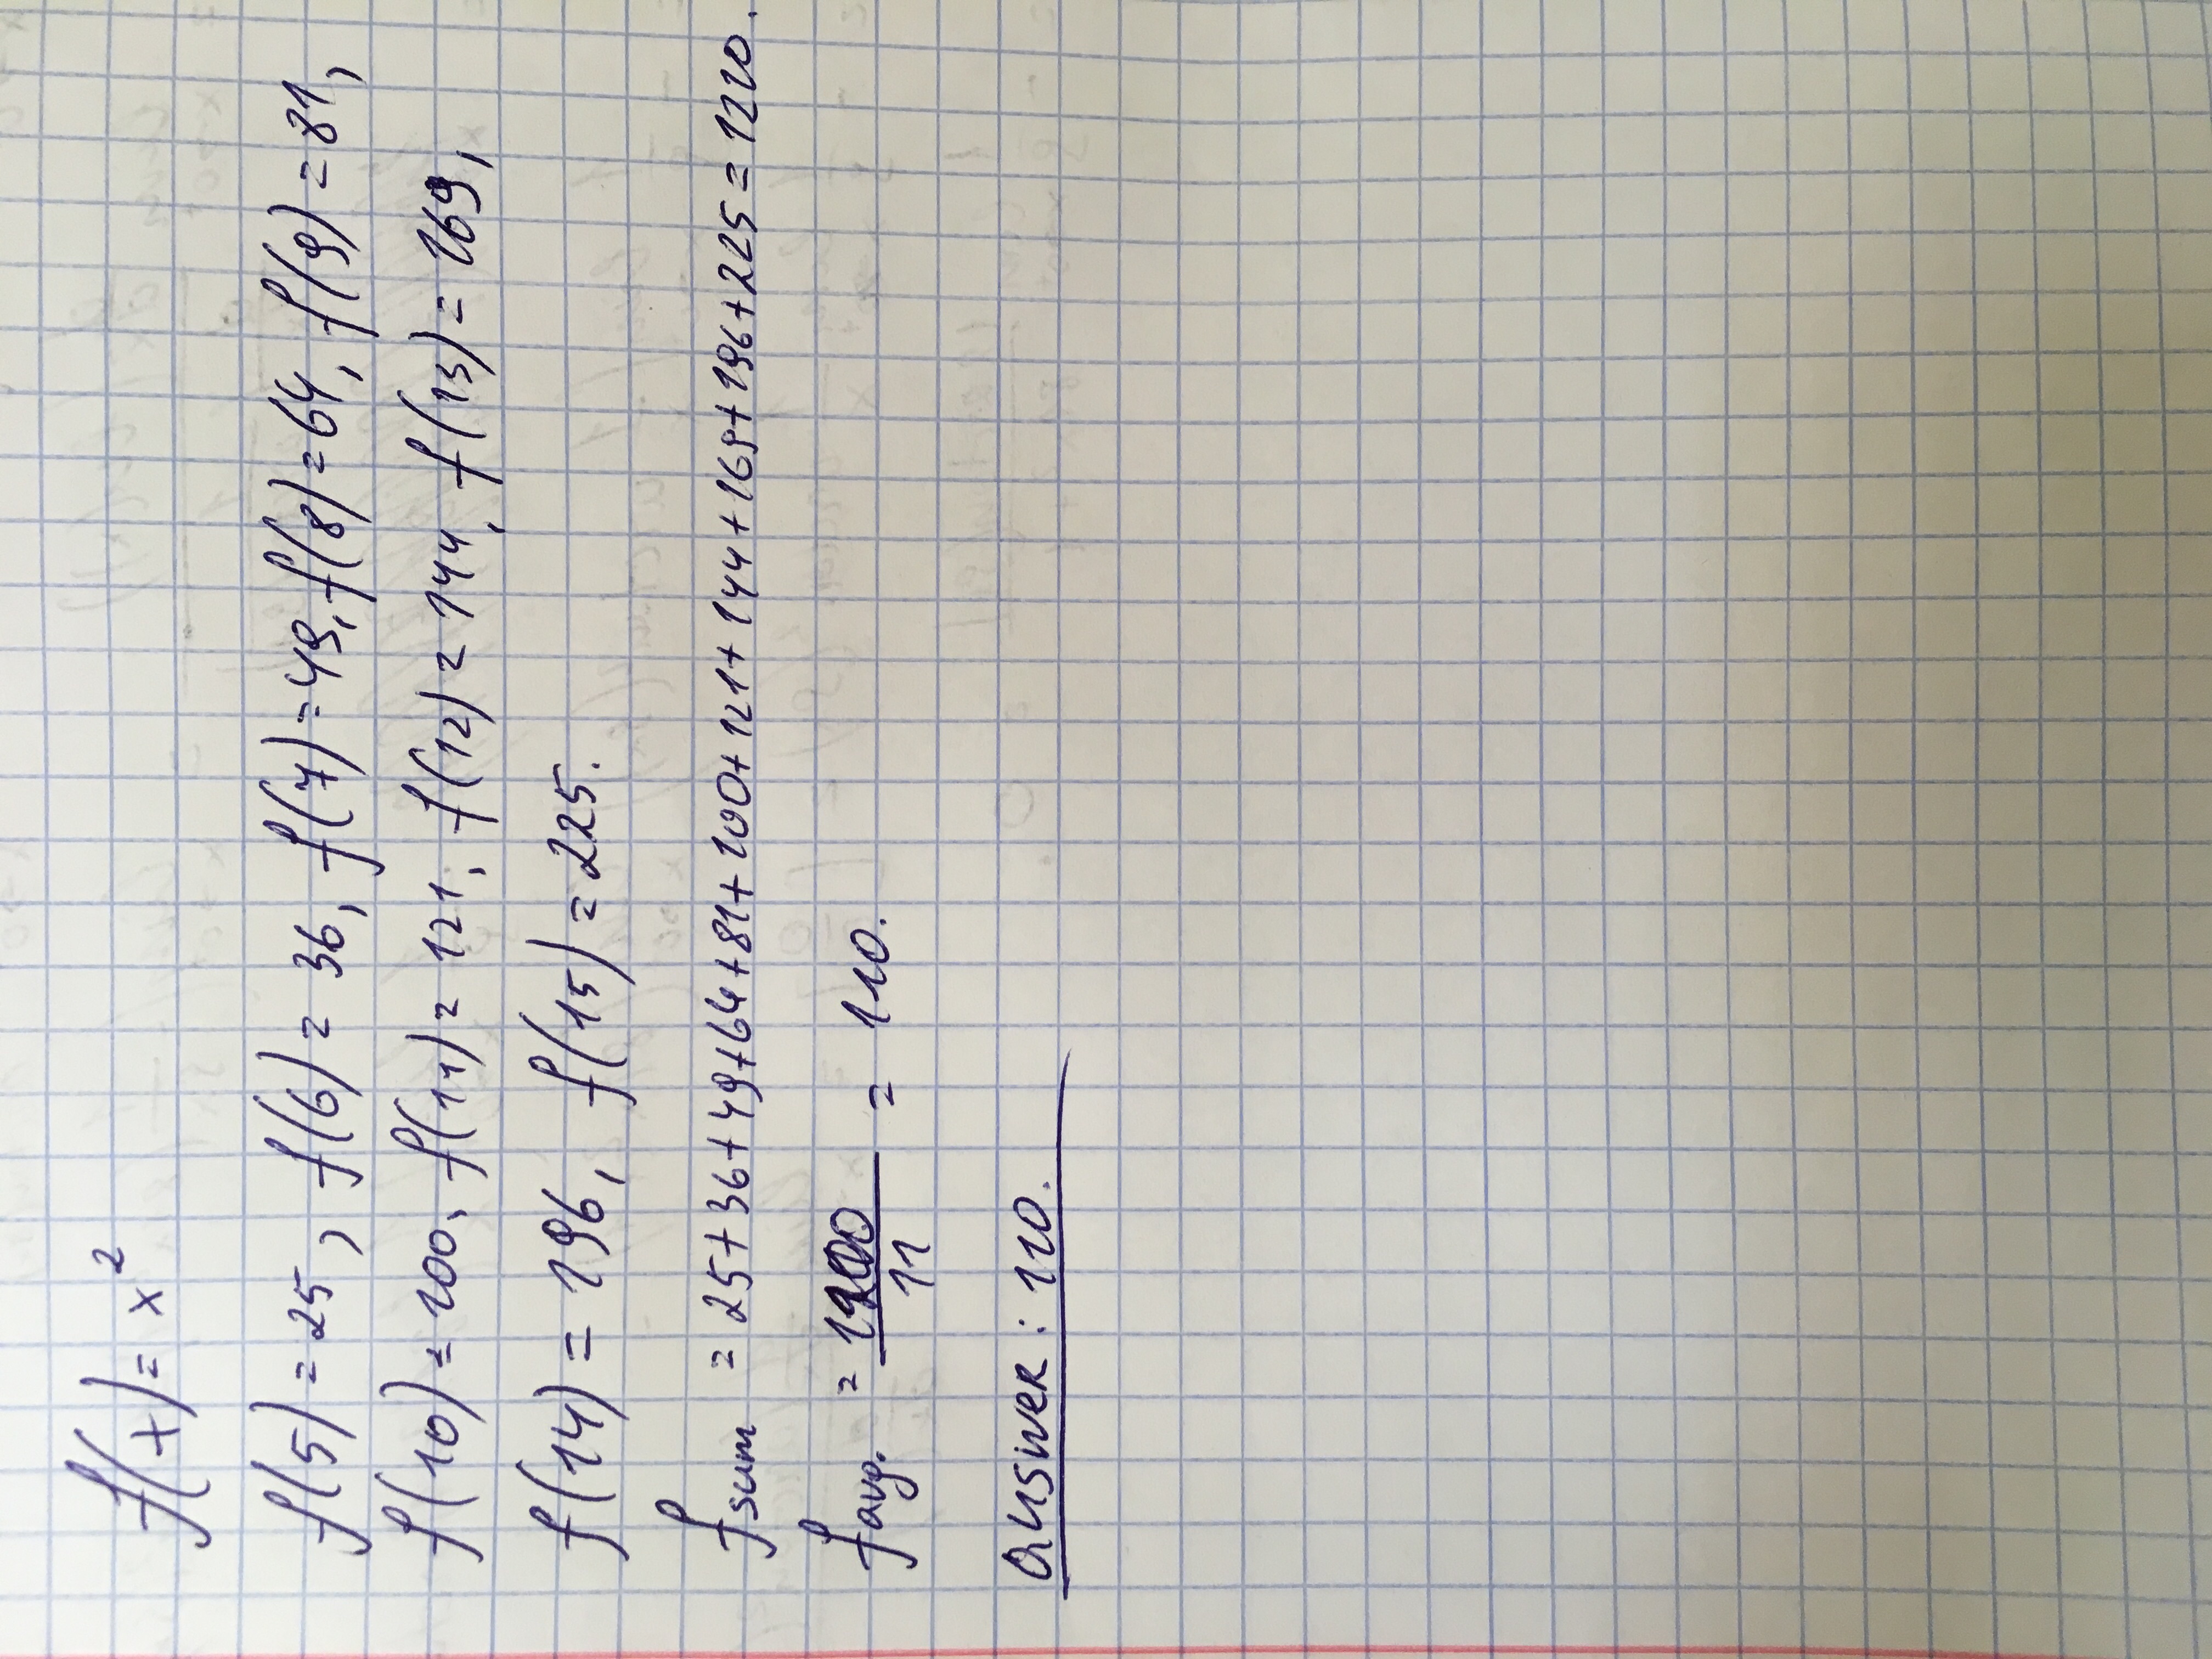 f(x) = x²
f(5) = 25, f(6) = 36, f(7) = 49, f(8) = 64, f(9) = 81,
f(10) = 100, f(11) = 121, f(12) = 144, f(13) = 169,
f(14) = 196, f(15) = 225.
fsum = 25+36+49+64+81+100+121+144+169+196+225 = 1210.
favg. = 1210/11 = 110.
Answer: 110.